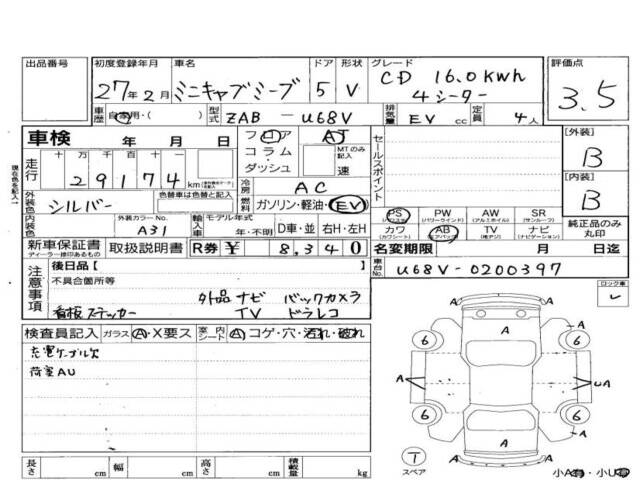 出品番号 初度登録年月 車名 ドア 形状 グレード 評価点
27年2月 ミニキャブミーブ 5 V CD 16.0kwh 4シーター 3.5
車歴 自家用・( ) 型式 ZAB-U68V 排気量 EV cc 定員 4人
車検 年 月 日 フロア コラム・ダッシュ AT MTのみ記入 速 セールスポイント [外装] B
走行 十 万 千 百 十 一 29174 km 冷房 AC [内装] B
外装色 シルバー 色替車は色替と記入 燃料 ガソリン・軽油・EV
内装色 外装カラーNo. A31 輸入車 モデル年式 年・不明 D車・並 右H・左H
PS PW (パワーウインド) AW (アルミホイル) SR (サンルーフ) 純正品のみ丸印
カワ (カワシート) AB (エアバック) TV (地デジ) ナビ (ナビゲーション)
新車保証書 ディーラー捺印あるもの 取扱説明書 R券 ¥ 8,340 名変期限 月 日迄
現在色を記入
注意事項 後日品[ ] 車台No. U68V-0200397
不具合箇所等 ロック車
外品ナビ バックカメラ
看板ステッカー TV ドラレコ
検査員記入 ガラス A・X要ス 室内シート A コゲ・穴・汚れ・破れ
充電ケーブル欠
荷室AU
A
A
6 6
A A UA
6 6
A
A
T スペア
小A・小U
長さ cm 幅 cm 高さ cm 積載量 kg